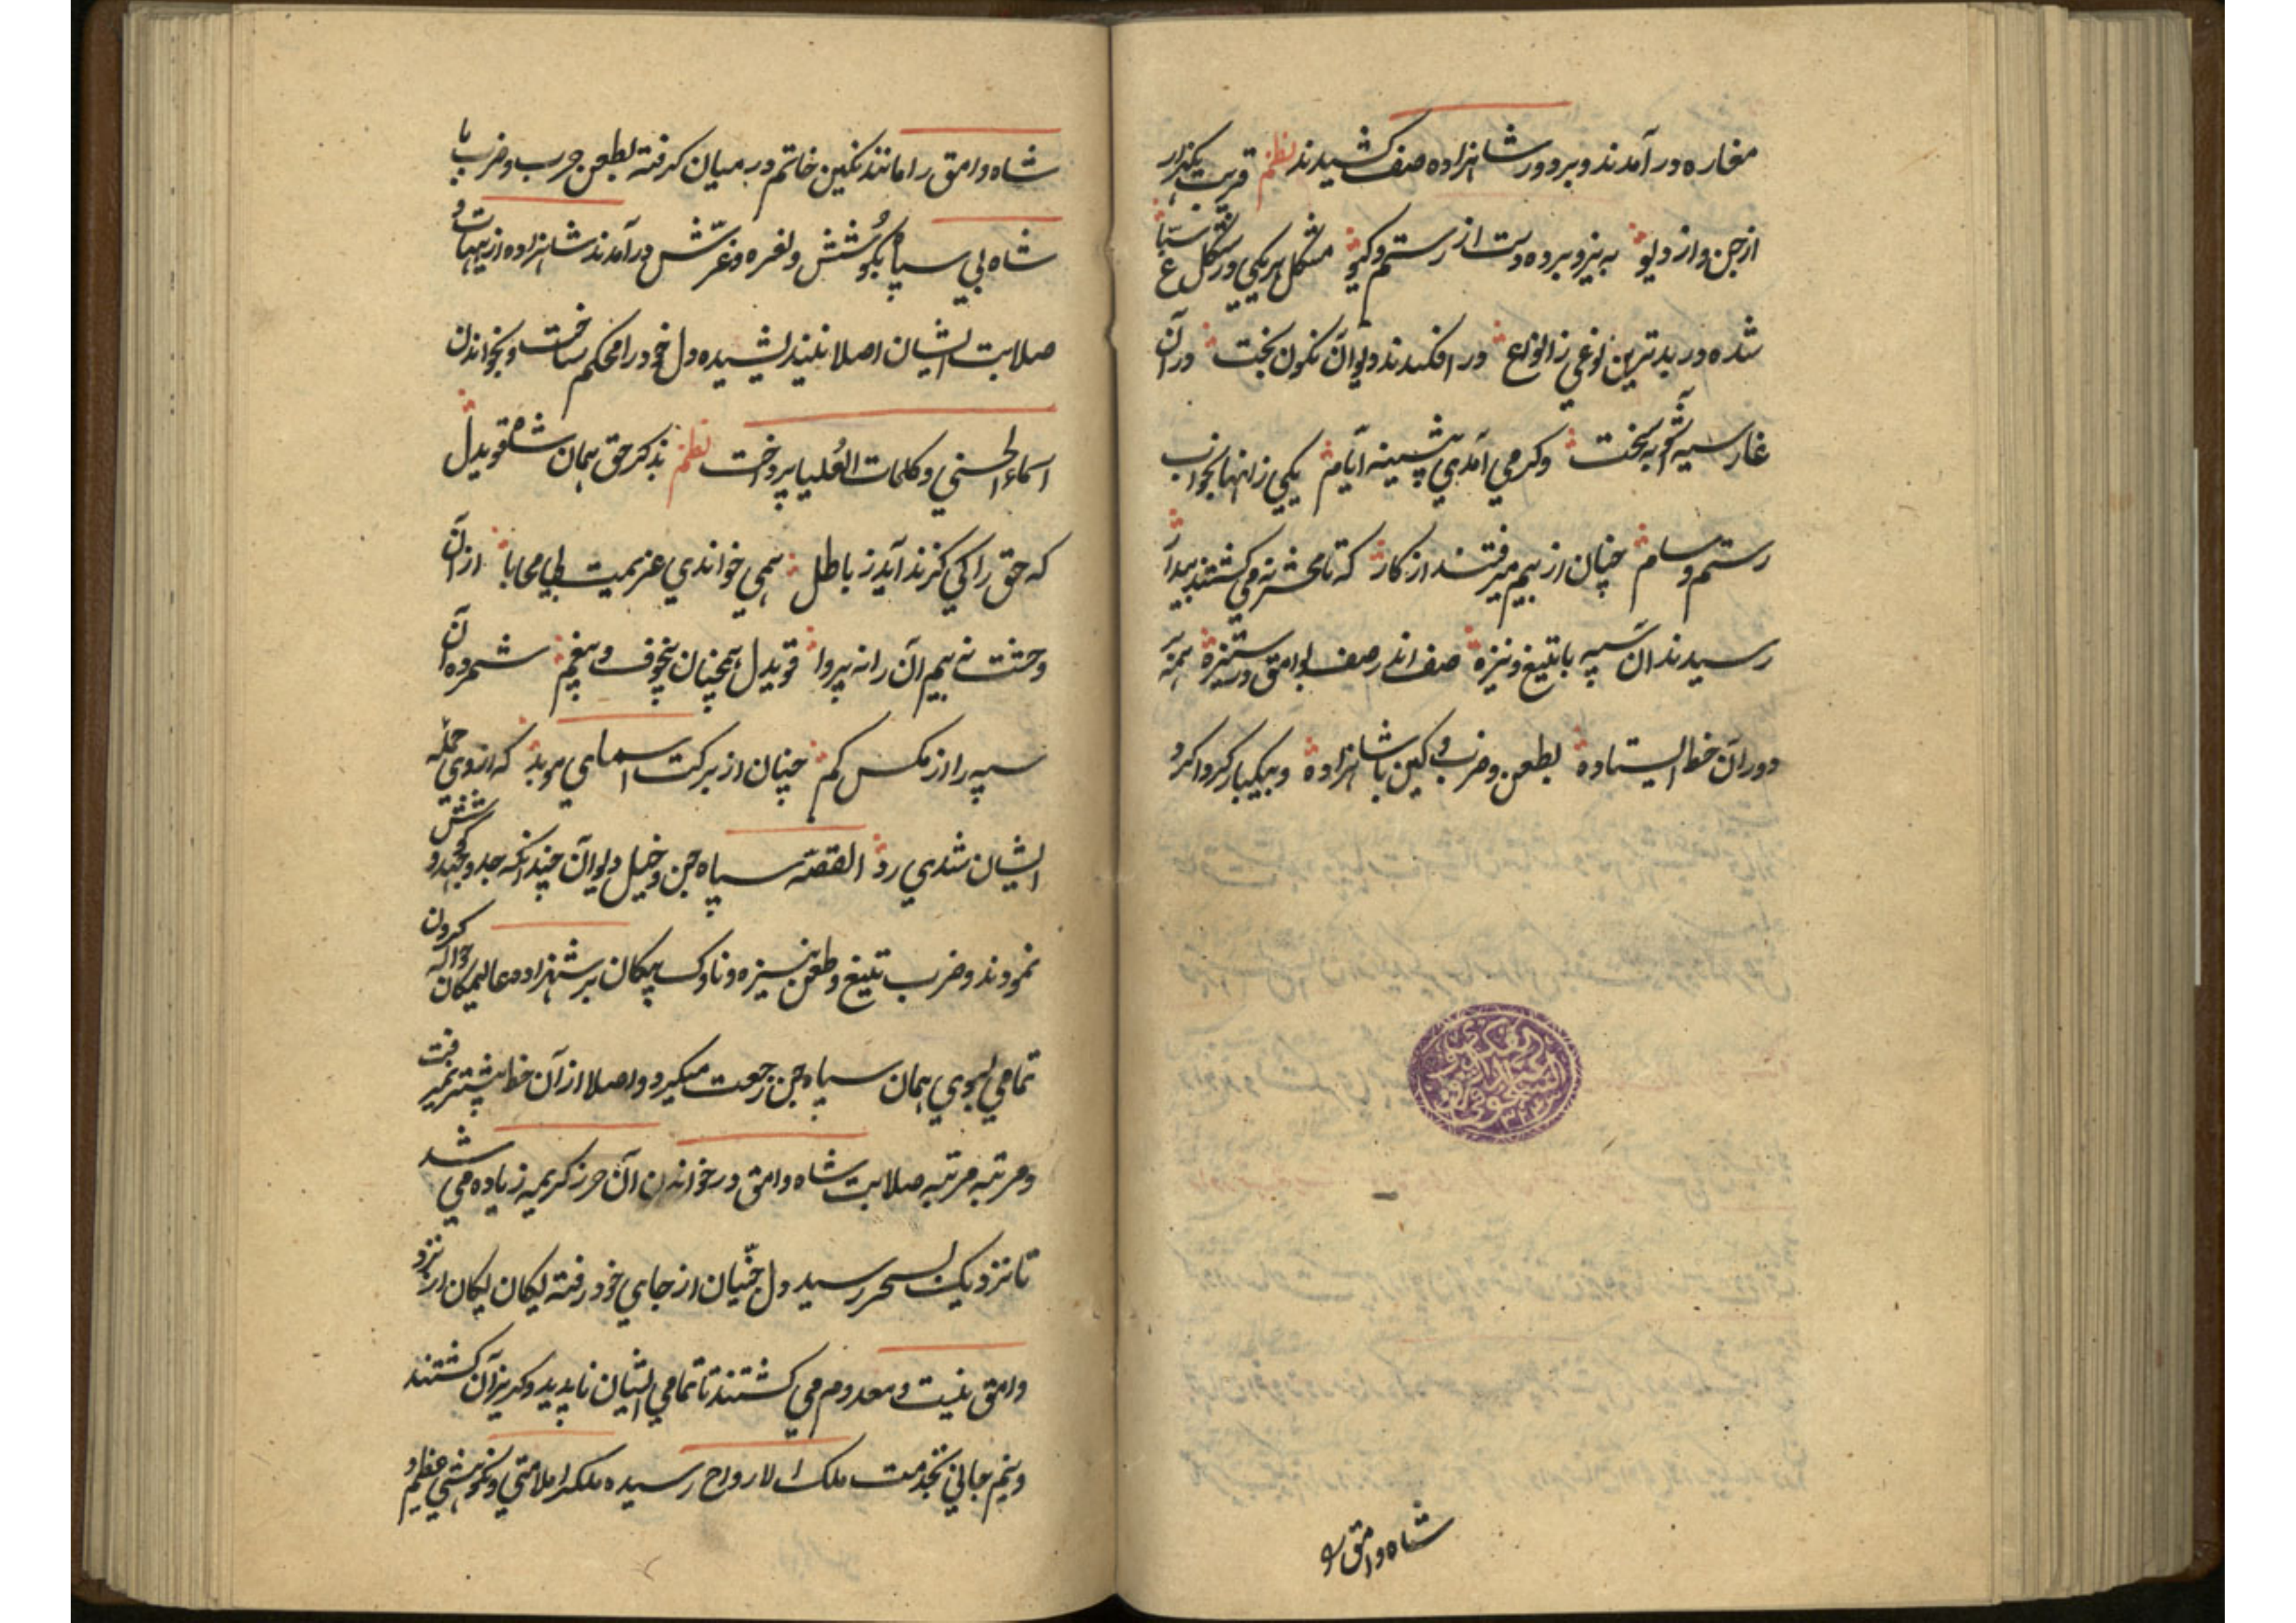 مغاره در آمدند و بر دور شاهزاده صف کشیدند نظم قریب یکهزار
از جن و از دیو به نیرو برده دست از رستم و گیو مشکل هر یکی در شکل
شده در بدترین نوعی ز انواع در افکندند دیوان نگون بخت در آن
غار سیه آشوبه سخت و کر می آمدی پیشینه ایام یکی زانها بخواب
رستم و سام چنان از بیم میرفتند از کار که تا محشر نمی گشتند بیدار
رسیدند آن سپه با تیغ و نیزه صف اندر صف بوامق در ستیزه همه
دور آن خط ایستاده بطعن و ضرب و کین با شاهزاده و بیکبار کرداکرد
شاه وامق را
شاه وامق را مانند نکین خاتم در میان کرفته بطعن و حرب و ضرب با
شاه بی سپاه بکوشش و نعره و غرّش در آمدند شاهزاده از هیهات و
صلابت ایشان اصلا نیندیشیده دل خود را محکم ساخت و بخواندن
اسماء الحسنی و کلمات العُلیا پرداخت نظم بذکر حق همان شاه قویدل
که حق را کی کزند آید ز باطل همی خواندی عزیمت بی محابا از آن
وحشت نه بیم آن را نه پروا قویدل همچنان بیخوف و بیغم شمرده آن
سپه را از مکس کم چنان از برکت اسمای موبد که از وی حمله
ایشان شدی رد القصّه سپاه جن و خیل دیوان چندانکه جد و جهد و کوشش
نمودند و ضرب تیغ و طعن نیزه و ناوک پیکان بر شهزاده عالیمکان حواله کردن
تمامی بسوی همان سپاه جن رجعت میکرد و اصلا از آن خط پیشتر نمیرفت
و مرتبه مرتبه صلابت شاه وامق در خواندن آن حرز کریمه زیاده می شد
تا نزدیک بسحر رسید دل جنّیان از جای خود رفته یکان یکان از نزد
وامق نیست و معدوم می کشتند تا تمامی ایشان ناپدید و کریزان کشتند
و نیم جانی بخدمت ملک الارواح رسیده ملک را ملامتی و نکوهشی عظیم و